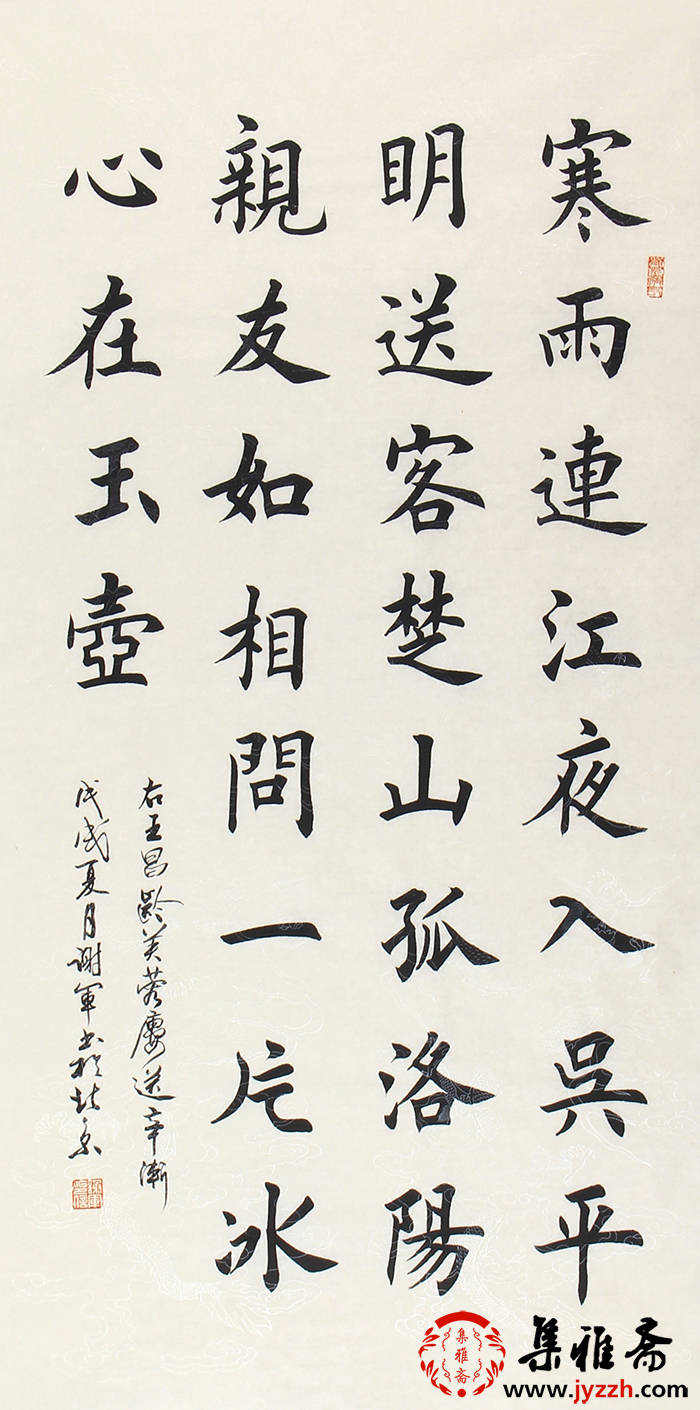 寒雨連江夜入吳平
明送客楚山孤洛陽
親友如相問一片冰
心在玉壺
右王昌齡芙蓉廔送辛漸
戊戌夏月谢軍书於北京
集雅斋
集雅斋
www.jyzzh.com